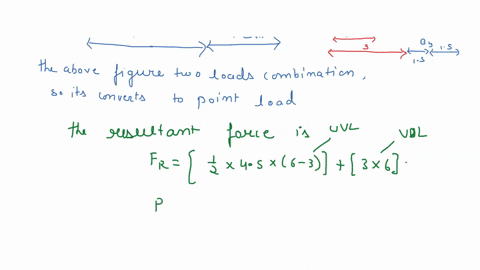 3
0y
1.5
1.5
the above figure two loads combination,
so its converts to point load
the resultant force is
UVL
UDL
FR = [ 1/2 × 4.5 × (6-3) ] + [ 3×6 ].
P